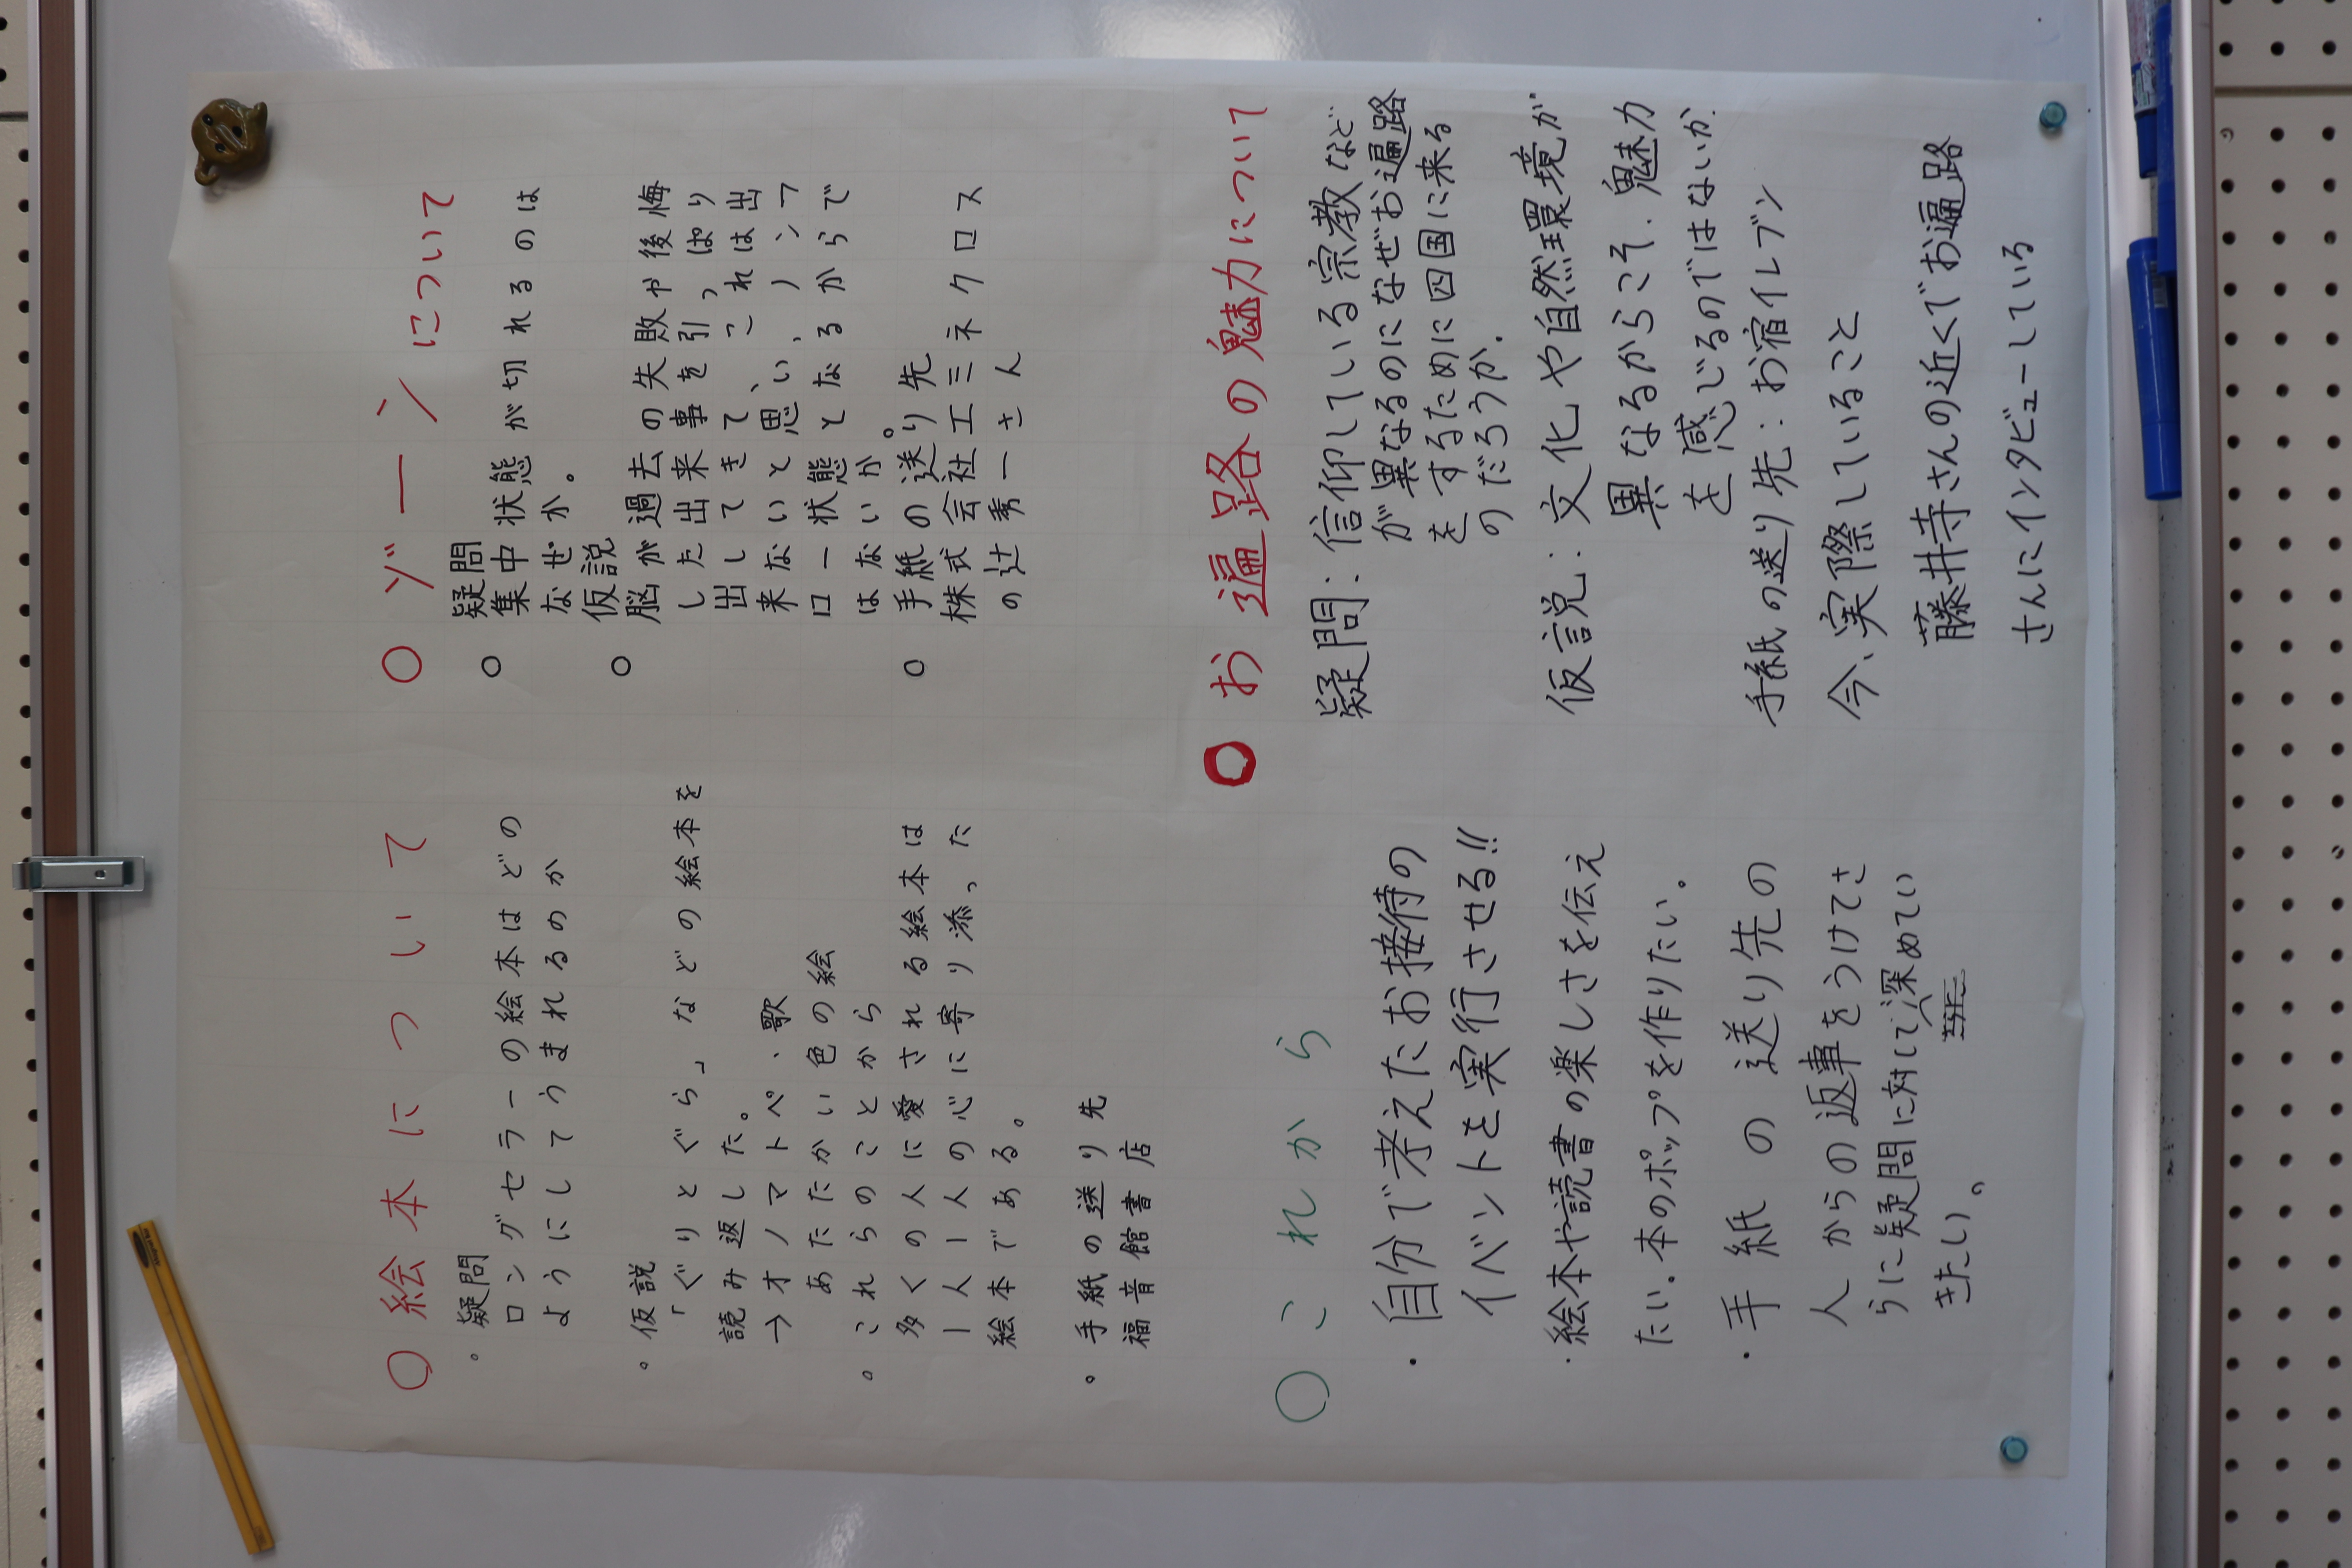 ○絵本について
。疑問
ロングセラーの絵本はどの
ようにしてうまれるのか
。仮説
「ぐりとぐら」などの絵本を
読み返した。
→オノマトペ、歌
あたたかい色の絵
。これらのことから
多くの人に愛される絵本は
一人一人の心に寄り添った
絵本である。
。手紙の送り先
福音館書店
○ゾーンについて
○疑問
集中状態が切れるのは
なぜか。
○仮説
脳が過去の失敗や後悔
した出来事を引っぱり
出してきて、これは出
来ないと思い、ノンフ
ロー状態となるからで
はないか。
○手紙の送り先
株式会社エミネクロス
の辻秀一さん
○これから
・自分で考えたお接待の
イベントを実行させる!!
・絵本や読書の楽しさを伝え
たい。本のポップを作りたい。
・手紙の送り先の
人からの返事をうけてさ
らに疑問に対して深めてい
きたい。
○お遍路の魅力について
疑問:信仰している宗教など
が異なるのになぜお遍路
をするために四国に来る
のだろうか.
仮説:文化や自然環境が
異なるからこそ.魅力
を感じるのではないか.
手紙の送り先:お宿イレブン
今、実際していること
藤井寺さんの近くでお遍路
さんにインタビューしている